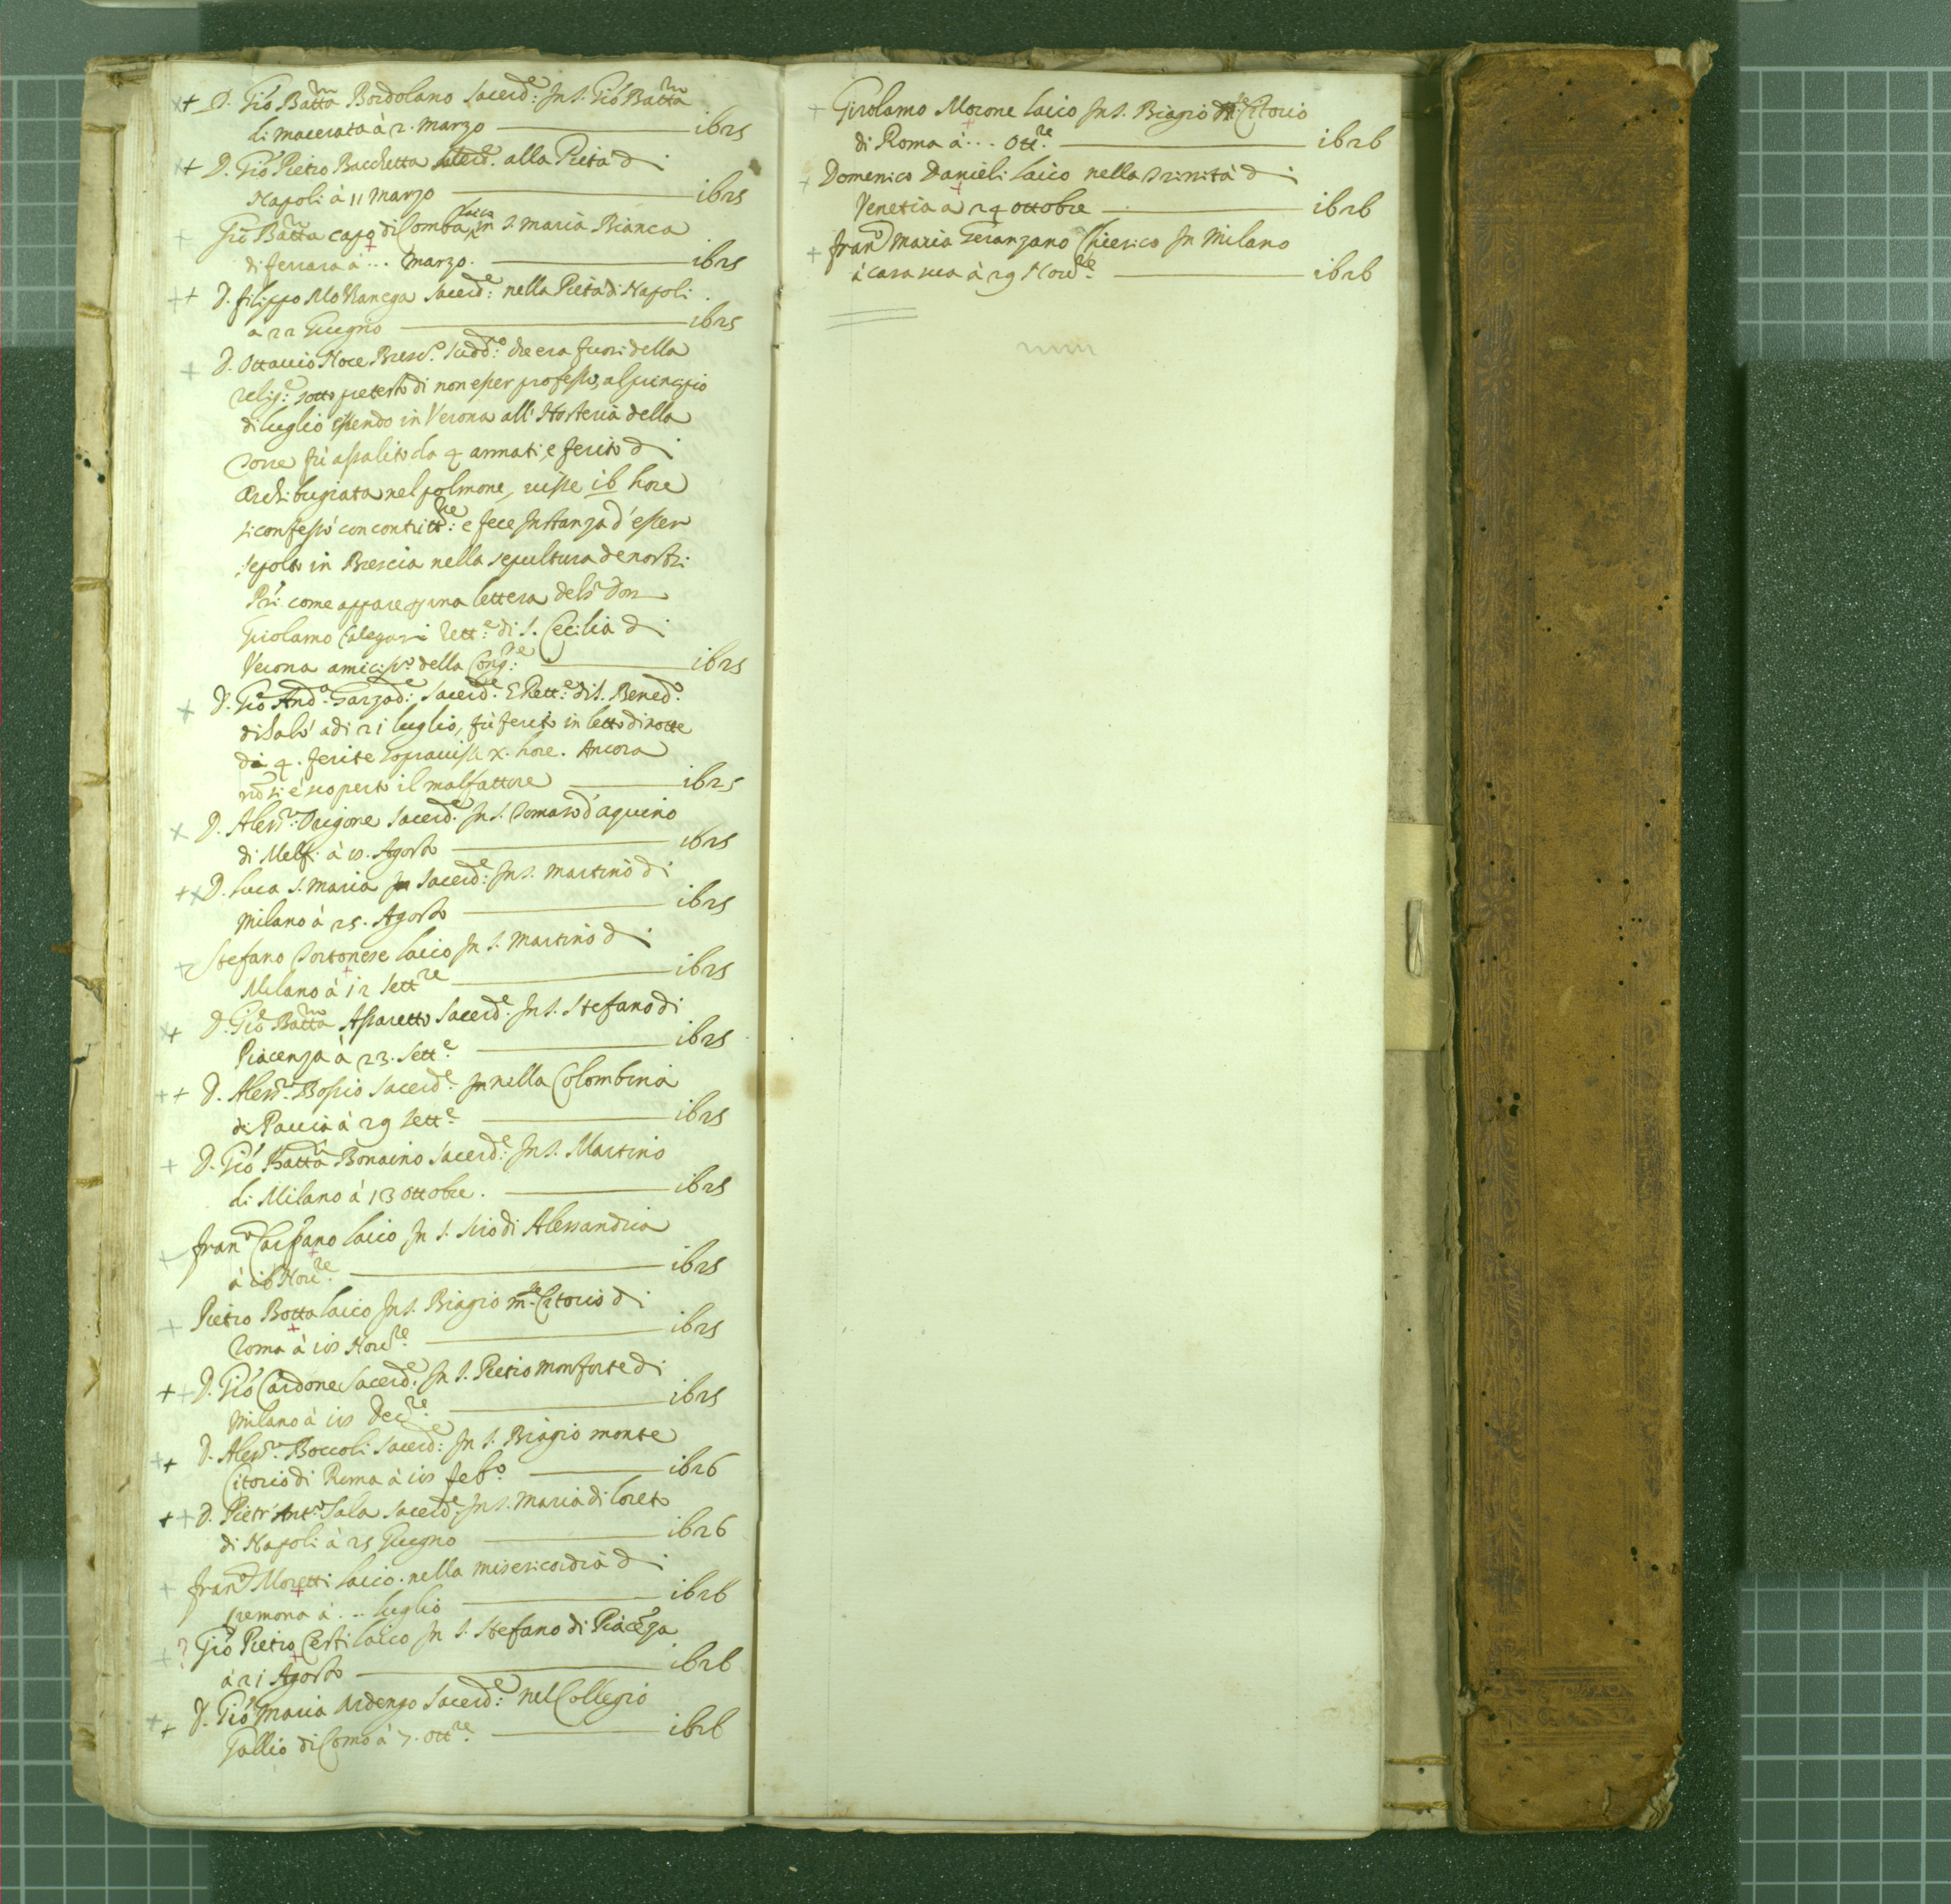 D. Giò Batta Bordolano Sacerd.e In S. Giò Batta
di Macerata à 2. Marzo — 1625
D. Giò Pietro Bacchetta Sacerd.e alla Pietà di
Napoli à 11 Marzo — 1625
Giò Batta capo di Comba laico in S. Maria Bianca
di ferrara à ... Marzo. — 1625
D. filippo Sacerd.e nella Pietà di Napoli
a 22 Giugno — 1625
D. Ottavio Noce Bresc.o Sudd.o che era fuori della
relig.e sotto pretesto di non esser professo, al principio
di luglio essendo in Verona all' Hosteria della
Torre fù assalito da 4 armati, e ferito di
Archibugiata nel polmone, visse 16 hore
si confessò con contritt.ne e fece Instanza d'esser
sepolto in Brescia nella sepultura de nostri
Pri. come appare p una lettera del S.r Don
Girolamo Calegari Rett.e di S. Cecilia di
Verona amiciss.o della Cong.ne — 1625
D. Giò And.a Garzad.i Sacerd.e E Rett.e di S. Bened.o
di Salò adi 21 luglio, fù ferito in letto di notte
di 4. ferite sopravisse x. hore. Ancora
nō si è scoperto il malfattore — 1625
D. Aless.ro Origone Sacerd.e In S. Tomaso d'aquino
di Melfi à 10. Agosto — 1625
D. Luca S. Maria Sacerd.e In S. Martino di
Milano à 25. Agosto — 1625
Stefano Tortonese laico In S. Martino di
Milano à 12 Sett.re — 1625
D. Giò Batta Assaretto Sacerd.e In S. Stefano di
Piacenza à 23. Sett.e — 1625
D. Aless.ro Bossio Sacerd.e nella Colombina
di Pavia à 29 Sett.e — 1625
D. Giò Batta Bonaino Sacerd.e In S. Martino
di Milano à 13 Ottobre. — 1625
fran.o Carpano laico In S. Siro di Alessandria
à 16 Nov.re — 1625
Pietro Botta laico In S. Biagio m.te Citorio di
Roma à 10 Nov.re — 1625
D. Giò Cardone Sacerd.e In S. Pietro monforte di
Milano à 10 Dec.re — 1625
D. Aless.ro Boccoli Sacerd.e In S. Biagio monte
Citorio di Roma à 10 feb.o — 1626
D. Pietr' Ant.o Sala Sacerd.e In S. Maria di loreto
di Napoli à 25 Giugno — 1626
fran.o Moretti laico nella misericordia di
Cremona à ... luglio — 1626
? Giò Pietro Certi laico In S. Stefano di Piacēza
à 21 Agosto — 1626
D. Giò Maria Ardengo Sacerd.e nel Collegio
Gallio di Como à 7. Ott.re — 1626
Girolamo Morone laico In S. Biagio m.te Citorio
di Roma à ... Ott.re — 1626
Domenico Danieli laico nella Trinità di
Venetia a 24 ottobre — 1626
fran.o Maria Geranzano Chierico In Milano
à casa sua à 29 Nov.re — 1626